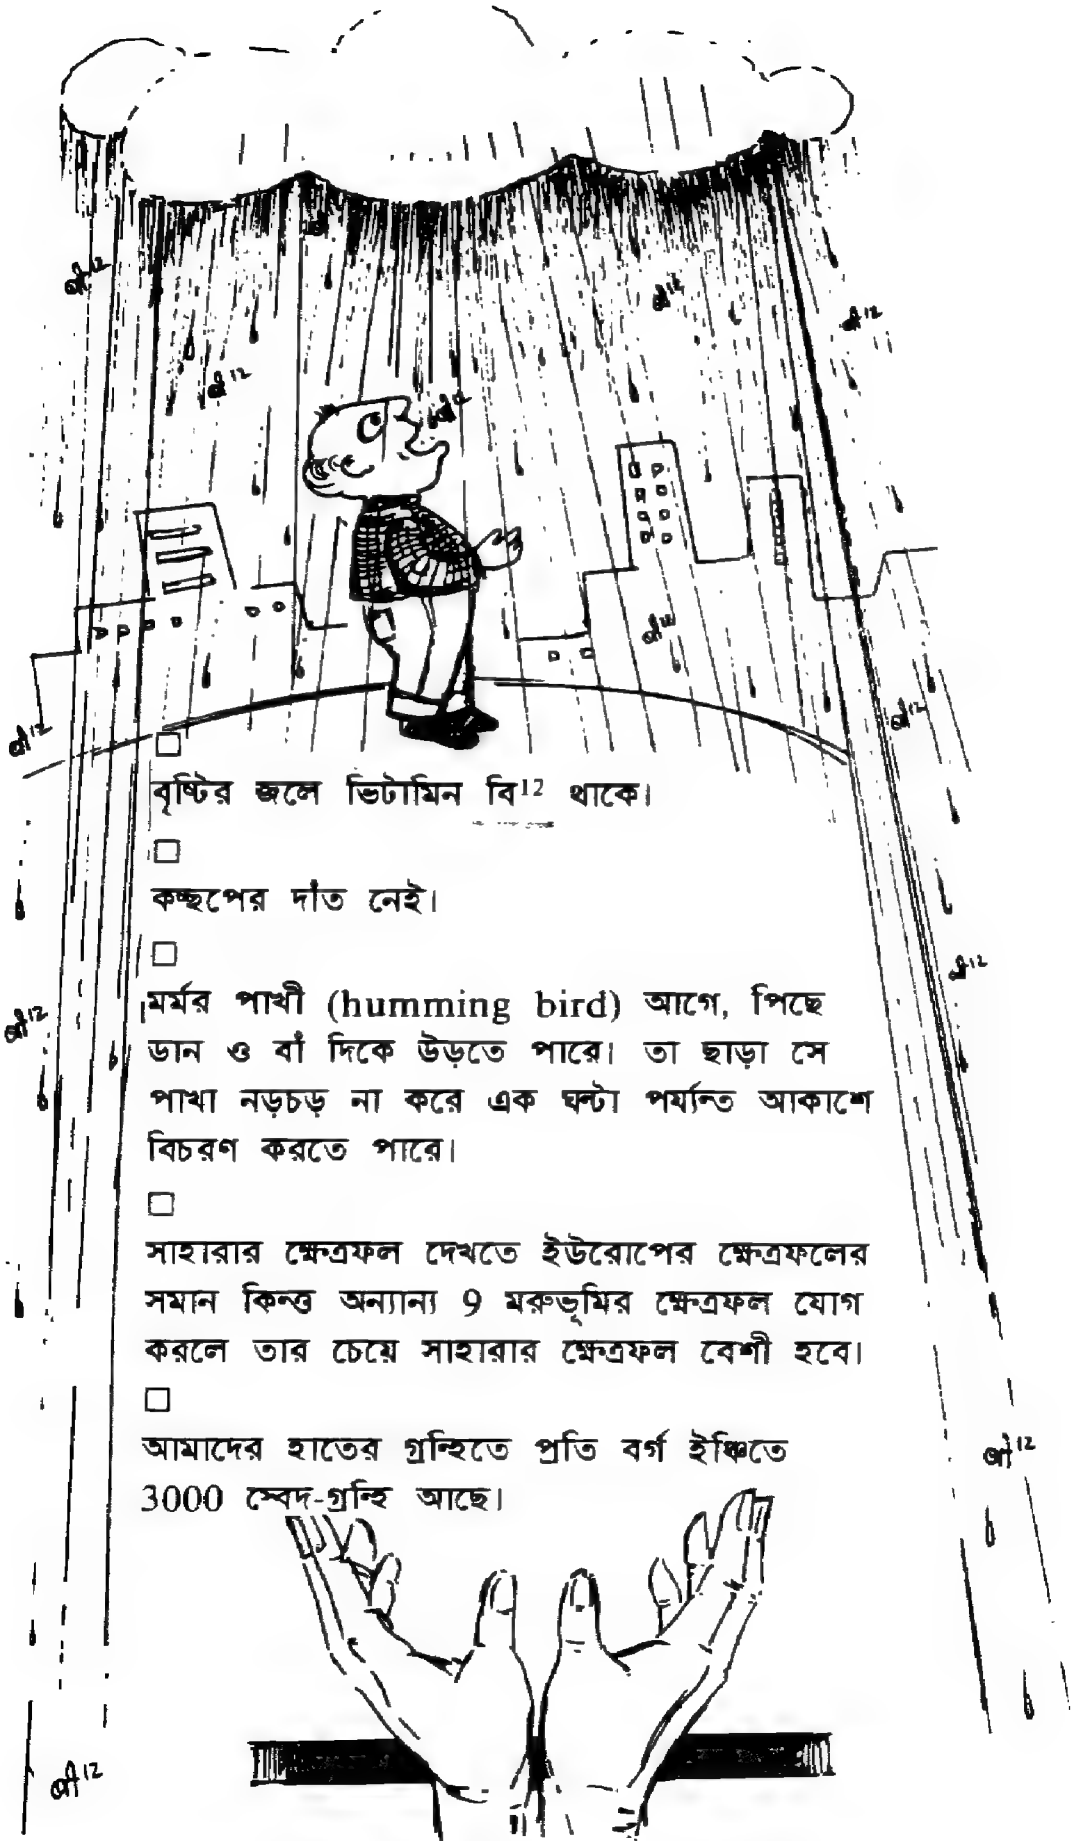 বী¹²
বী¹²
বী¹²
বী¹²
বী¹²
বী¹²
বী¹²
বী¹²
□
বৃষ্টির জলে ভিটামিন বি¹² থাকে।
□
কচ্ছপের দাঁত নেই।
□
মর্মর পাখী (humming bird) আগে, পিছে
ডান ও বাঁ দিকে উড়তে পারে। তা ছাড়া সে
পাখা নড়চড় না করে এক ঘন্টা পর্য্যন্ত আকাশে
বিচরণ করতে পারে।
□
সাহারার ক্ষেত্রফল দেখতে ইউরোপের ক্ষেত্রফলের
সমান কিন্তু অন্যান্য 9 মরুভূমির ক্ষেত্রফল যোগ
করলে তার চেয়ে সাহারার ক্ষেত্রফল বেশী হবে।
□
আমাদের হাতের গ্রন্থিতে প্রতি বর্গ ইঞ্চিতে
3000 স্বেদ-গ্রন্থি আছে।
বী¹²
বী¹²
বী¹²
বী¹²